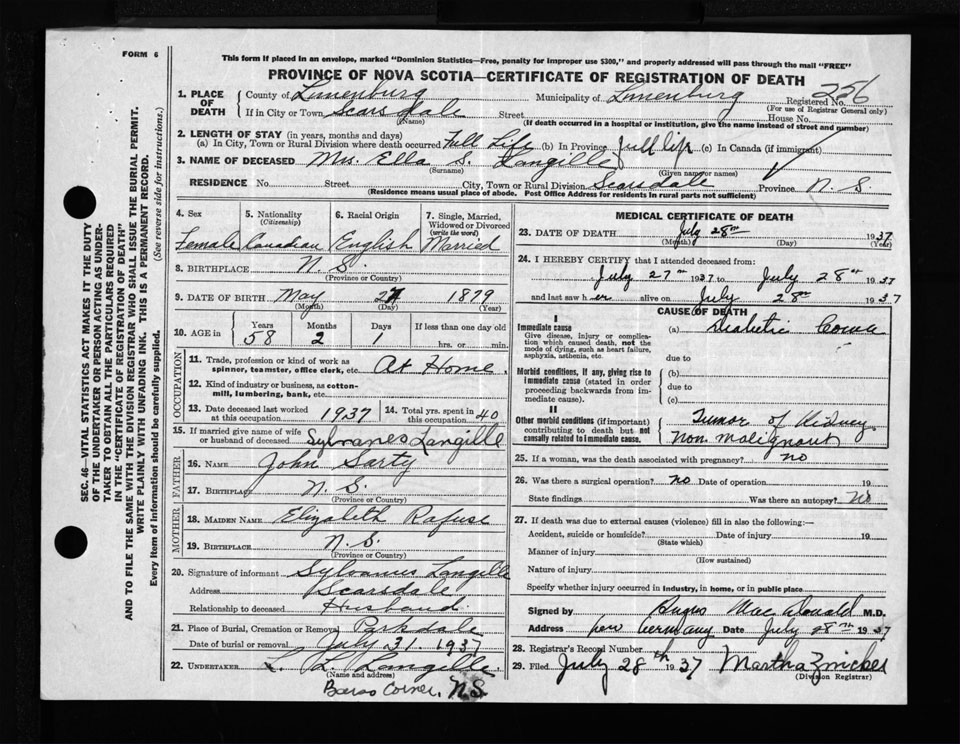 FORM 6
This form if placed in an envelope, marked "Dominion Statistics—Free, penalty for improper use $300," and properly addressed will pass through the mail "FREE"
PROVINCE OF NOVA SCOTIA—CERTIFICATE OF REGISTRATION OF DEATH
1. PLACE OF DEATH
County of Lunenburg Municipality of Lunenburg Registered No. 256
(For use of Registrar General only)
If in City or Town Scarsdale Street House No.
(Name) (If death occurred in a hospital or institution, give the name instead of street and number)
2. LENGTH OF STAY (in years, months and days)
(a) In City, Town or Rural Division where death occurred Full Life (b) In Province full life (c) In Canada (if immigrant)
3. NAME OF DECEASED Mrs. Ella S. Langille
(Surname) (Given name or names)
RESIDENCE No. Street City, Town or Rural Division Scarsdale Province N. S.
(Residence means usual place of abode. Post Office Address for residents in rural parts not sufficient)
4. Sex 5. Nationality (Citizenship) 6. Racial Origin 7. Single, Married, Widowed or Divorced (write the word)
Female Canadian English Married
8. BIRTHPLACE N. S.
(Province or Country)
9. DATE OF BIRTH May 27 1879
(Month) (Day) (Year)
10. AGE in Years Months Days If less than one day old
58 2 1 hrs. or min.
OCCUPATION
11. Trade, profession or kind of work as spinner, teamster, office clerk, etc. At Home.
12. Kind of industry or business, as cotton-mill, lumbering, bank, etc.
13. Date deceased last worked at this occupation. 1937 14. Total yrs. spent in this occupation. 40
15. If married give name of wife or husband of deceased Sylvanes Langille
FATHER
16. NAME John Sarty
17. BIRTHPLACE N. S.
(Province or Country)
MOTHER
18. MAIDEN NAME Elizabeth Rafuse
19. BIRTHPLACE N. S.
(Province or Country)
20. Signature of informant Sylvanus Langille
Address Scarsdale
Relationship to deceased Husband
21. Place of Burial, Cremation or Removal Parkdale
Date of burial or removal July 31. 1937
22. UNDERTAKER L. Langille
(Name and address)
Barss Corner, N.S.
MEDICAL CERTIFICATE OF DEATH
23. DATE OF DEATH July 28th 1937
(Month) (Day) (Year)
24. I HEREBY CERTIFY that I attended deceased from:
July 27th 1937 to July 28th 1937
and last saw her alive on July 28th 1937
CAUSE OF DEATH
I
Immediate cause
Give disease, injury or complication which caused death, not the mode of dying, such as heart failure, asphyxia, asthenia, etc.
(a) Diabetic Coma
due to
Morbid conditions, if any, giving rise to immediate cause (stated in order proceeding backwards from immediate cause).
(b)
due to
(c)
II
Other morbid conditions (if important) contributing to death but not causally related to immediate cause.
Tumor of Kidney
Non Malignant
25. If a woman, was the death associated with pregnancy? no
26. Was there a surgical operation? no Date of operation 19
State findings Was there an autopsy? No
27. If death was due to external causes (violence) fill in also the following:—
Accident, suicide or homicide? Date of injury 19
(State which)
Manner of injury
(How sustained)
Nature of injury
Specify whether injury occurred in industry, in home, or in public place
Signed by Angus MacDonald M.D.
Address New Germany Date July 28th 1937
28. Registrar's Record Number
29. Filed July 28th 1937 Martha Zwicker
(Division Registrar)
SEC. 46—VITAL STATISTICS ACT MAKES IT THE DUTY
OF THE UNDERTAKER OR PERSON ACTING AS UNDER-
TAKER TO OBTAIN ALL THE PARTICULARS REQUIRED
IN THE "CERTIFICATE OF REGISTRATION OF DEATH"
AND TO FILE THE SAME WITH THE DIVISION REGISTRAR WHO SHALL ISSUE THE BURIAL PERMIT.
WRITE PLAINLY WITH UNFADING INK. THIS IS A PERMANENT RECORD.
Every item of information should be carefully supplied. (See reverse side for instructions.)